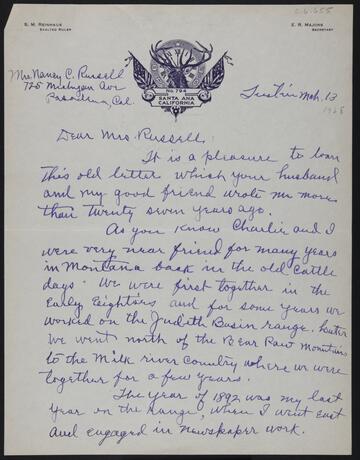 S. M. REINHAUS
EXALTED RULER
E. R. MAJORS
SECRETARY
No. 794
SANTA ANA
CALIFORNIA
Mrs. Nancy C. Russell
725 Michigan Ave
Pasadena, Cal.
Tustin Mch. 13
1928
Dear Mrs. Russell:
It is a pleasure to loan
this old letter which your husband
and my good friend wrote me more
than twenty seven years ago.
As you know Charlie and I
were very near friend for many years
in Montana back in the old cattle
days. We were first together in the
Early Eighties and for some years we
worked on the Judith Basin range, later
we went north of the Bear Paw Mountains
to the Milk river Country where we were
together for a few years.
The year of 1892 was my last
year on the range, when I went east
and engaged in newspaper work.